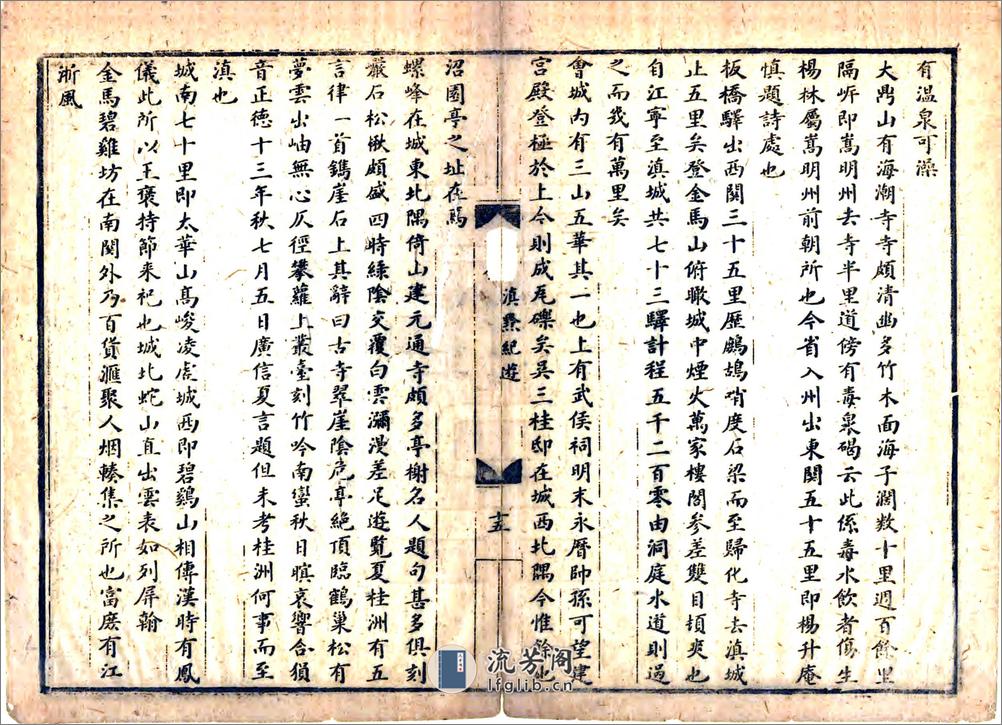 有温泉可澡
大鼎山有海潮寺寺頗清幽多竹木面海子濶数十里週百餘里
隔嶼即嵩明州去寺半里道傍有毒泉碣云此係毒水飲者傷生
楊林屬嵩明州前朝所也今省入州出東関五十五里即楊升庵
慎題詩處也
板橋驛出西関三十五里歷鷓鴣哨度石梁而至歸化寺去滇城
止五里矣登金馬山俯瞰城中煙火萬家樓閣参差雙目頓爽也
自江寧至滇城共七十三驛計程五千二百零由洞庭水道則過
之而幾有萬里矣
會城内有三山五華其一也上有武侯祠明末永曆帥孫可望建
宮殿登極於上今則成瓦礫矣吳三桂邸在城西北隅今惟餘也
滇黔紀遊
十五
沼園亭之址在焉
螺峰在城東北隅倚山建元通寺頗多亭榭名人題句甚多俱刻
巖石松楸頗盛四時緑陰交覆白雲瀰漫差足遊覧夏桂洲有五
言律一首鐫崖石上其辭曰古寺翠崖陰危亭絶頂臨鶴巢松有
夢雲出岫無心仄徑攀蘿上叢臺刻竹吟南蠻秋日暝哀響合猿
音正徳十三年秋七月五日廣信夏言題但未考桂洲何事而至
滇也
城南七十里即太華山髙峻凌虚城西即碧鷄山相傳漢時有鳳
儀此所以王褒持節来祀也城北蛇山直出雲表如列屏翰
金馬碧雞坊在南関外乃百貨滙聚人烟輳集之所也富庶有江
浙風
流芳阁
lfglib.cn